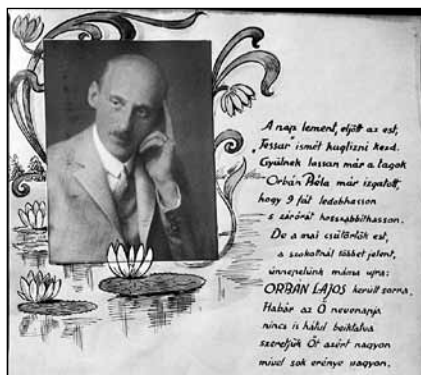 A nap lement, eljött az est,
Tessar ismét kuglizni kezd.
Gyülnek lassan már a tagok
Orbán Béla már izgatott,
hogy 9 fát ledobhasson
s zárórát hosszabbithasson.
De a mai csütörtök est,
a szokottnál többet jelent,
ünnepelünk máma ujra:
ORBÁN LAJOS került sorra.
Habár az Ő nevenapja
nincs is hátul beiktatva
szeretjük Őt azért nagyon
mivel sok erénye vagyon.